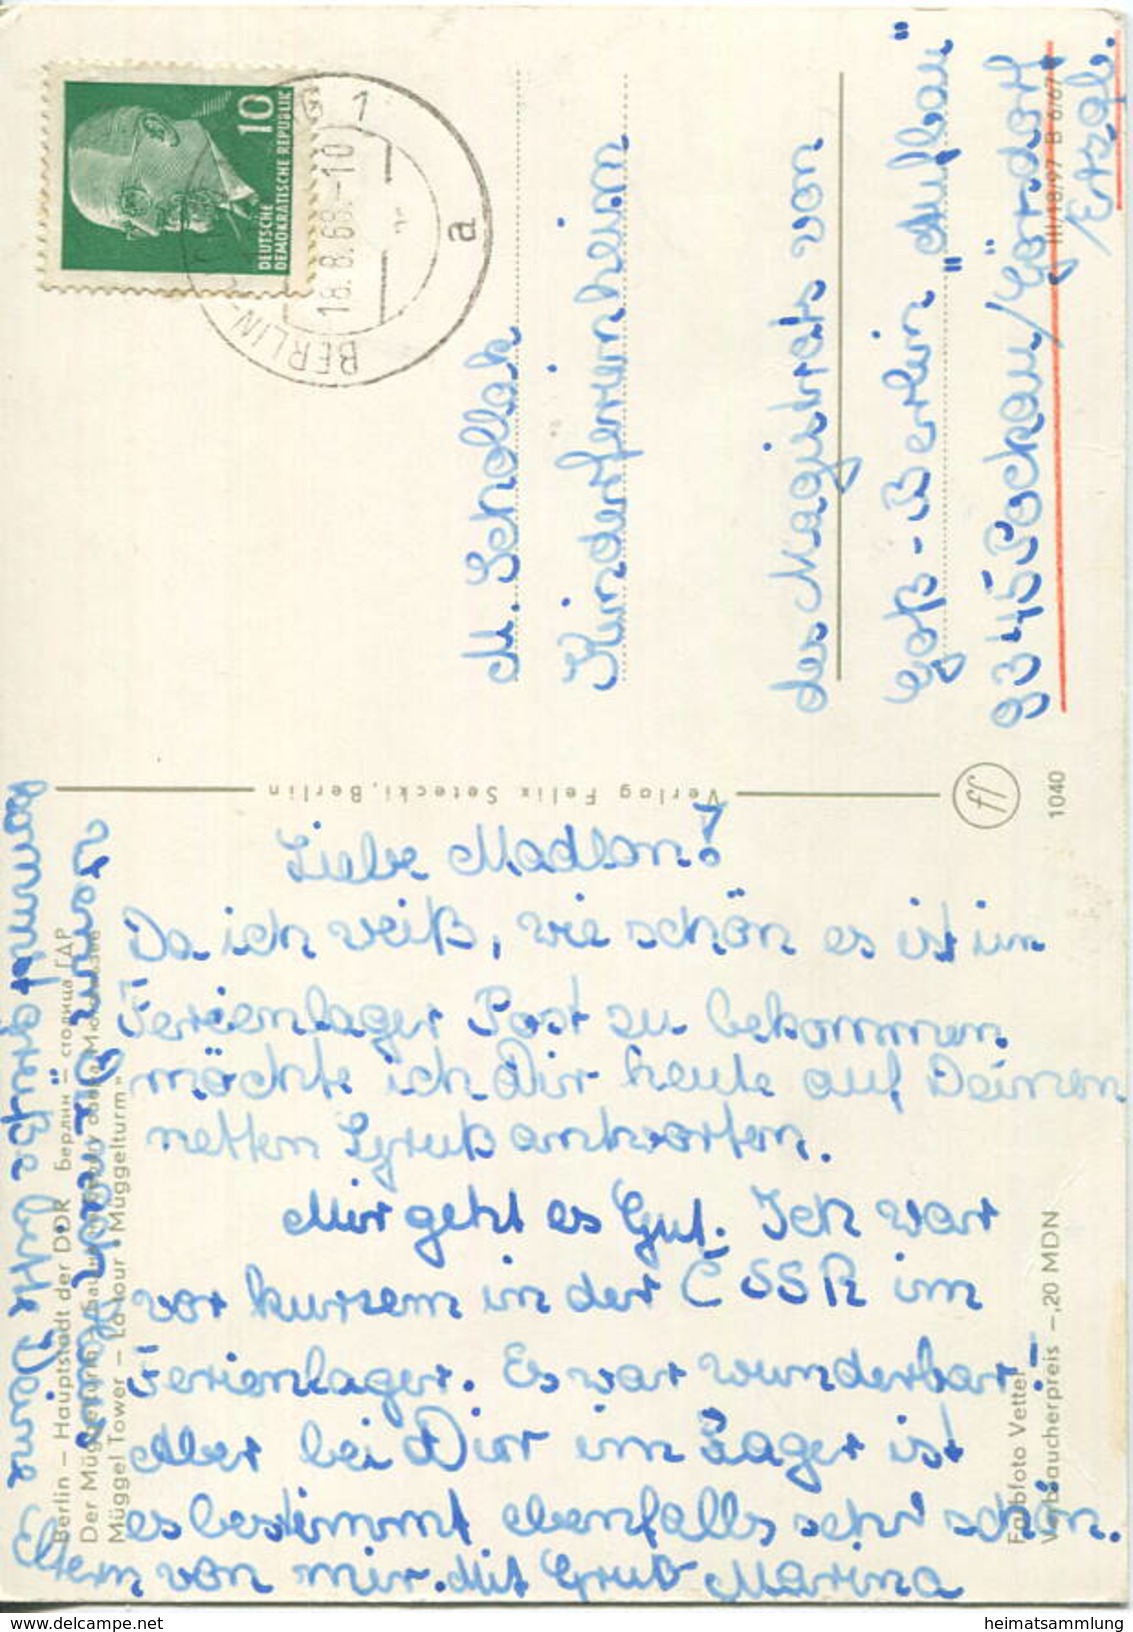 DEUTSCHE
DEMOKRATISCHE REPUBLIK
10
BERLIN
18.8.68.-10
1
a
M. Schollak
Kinderferienheim
des Magistrats von
Groß-Berlin "Aufbau"
9345 Pockau/Görsdorf
Erzgb.
III/18/97 B 6/67
Verlag Felix Setecki, Berlin
ff
1040
Liebe Madlon!
Da ich weiß, wie schön es ist im
Ferienlager Post zu bekommen
möchte ich Dir heute auf Deinen
netten Gruß antworten.
Mir geht es Gut. Ich war
vor kurzem in der ČSSR im
Ferienlager. Es war wunderbar!
Aber bei Dir im Lager ist
es bestimmt ebenfalls sehr schön.
Mit Gruß Marina
grüße bitte Deine
Eltern von mir.
Berlin – Hauptstadt der DDR Берлин – столица ГДР
Der Müggelturm
Müggel Tower – La tour „Müggelturm“
Farbfoto Vetter
Verbraucherpreis –,20 MDN
www.delcampe.net
heimatsammlung